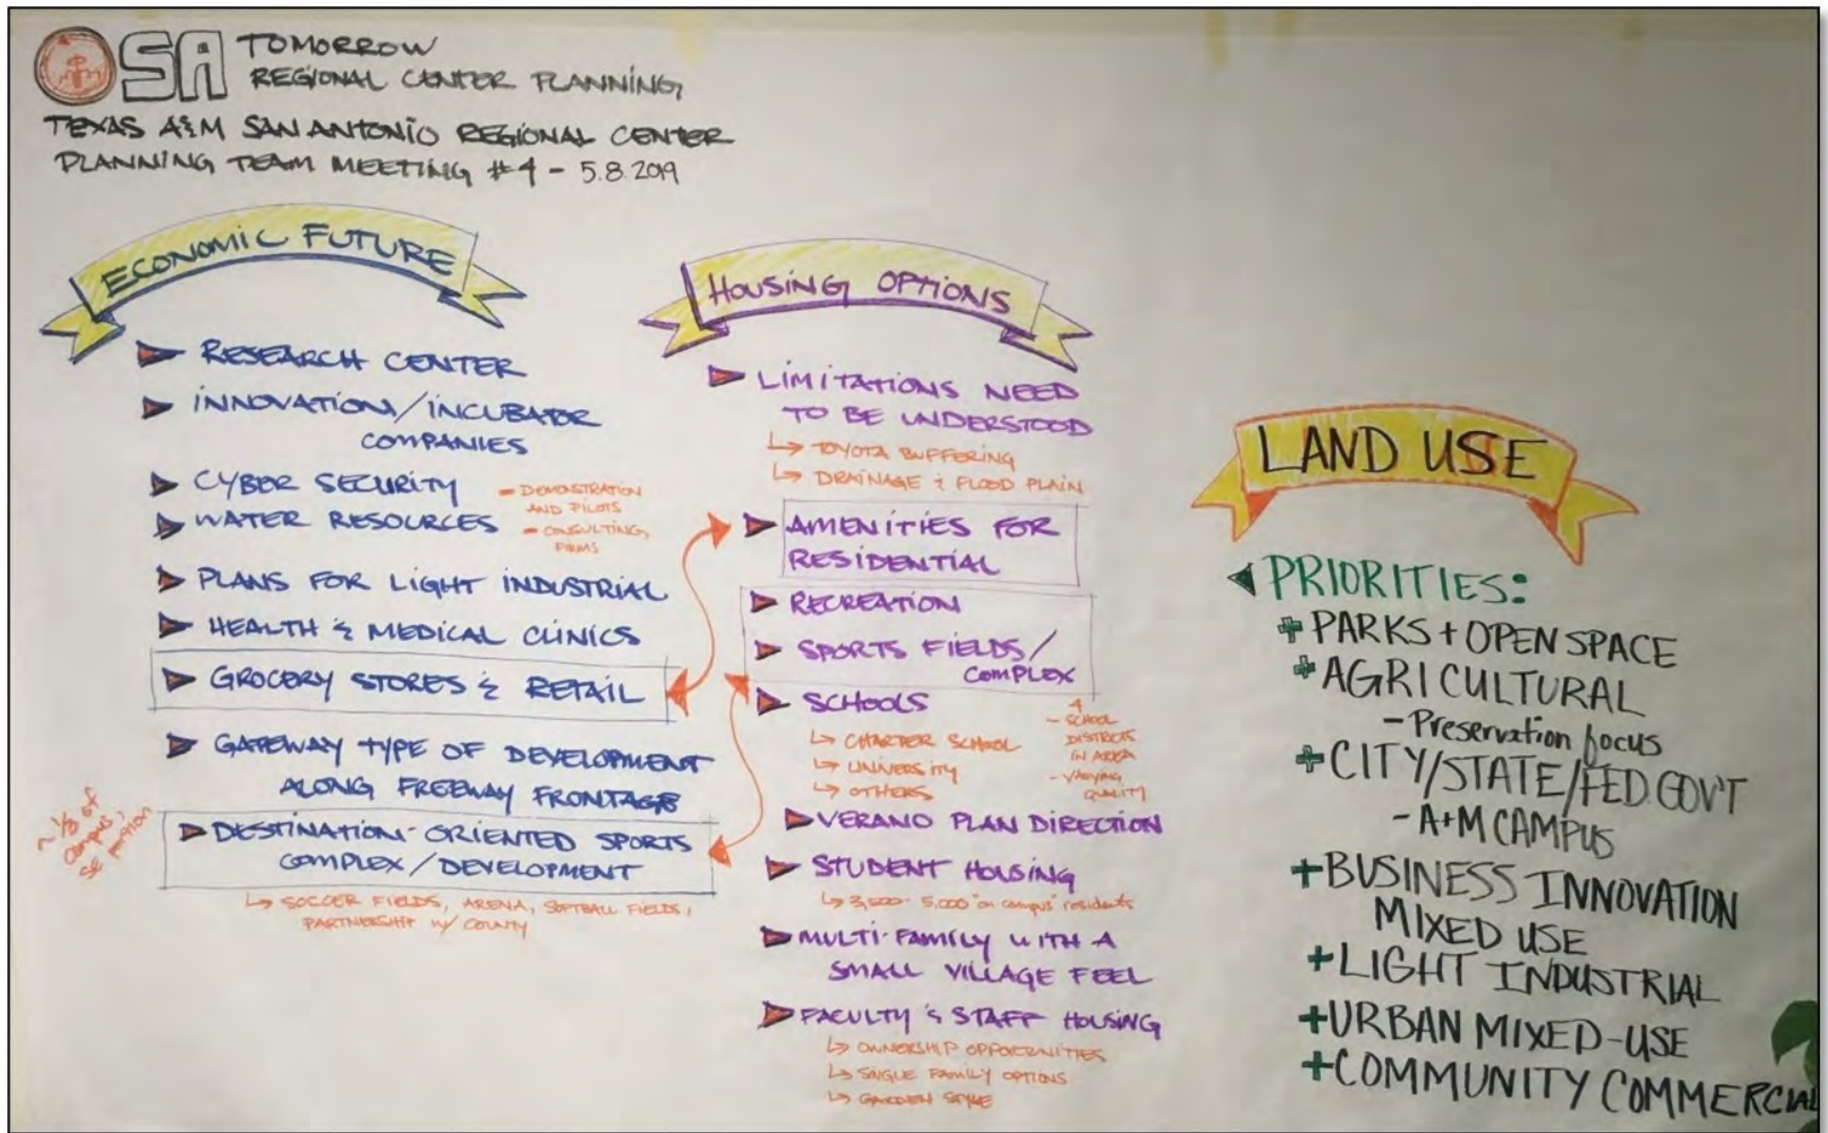 SA TOMORROW
REGIONAL CENTER PLANNING
TEXAS A&M SAN ANTONIO REGIONAL CENTER
PLANNING TEAM MEETING #4 - 5.8.2019
ECONOMIC FUTURE
RESEARCH CENTER
INNOVATION/INCUBATOR
COMPANIES
CYBER SECURITY
WATER RESOURCES
- DEMONSTRATION
AND PILOTS
- CONSULTING
FIRMS
PLANS FOR LIGHT INDUSTRIAL
HEALTH & MEDICAL CLINICS
GROCERY STORES & RETAIL
GATEWAY TYPE OF DEVELOPMENT
ALONG FREEWAY FRONTAGE
~ 1/3 of
campus,
SE portion
DESTINATION-ORIENTED SPORTS
COMPLEX/DEVELOPMENT
↳ SOCCER FIELDS, ARENA, SOFTBALL FIELDS,
PARTNERSHIP W/ COUNTY
HOUSING OPTIONS
LIMITATIONS NEED
TO BE UNDERSTOOD
↳ TOYOTA BUFFERING
↳ DRAINAGE & FLOOD PLAIN
AMENITIES FOR
RESIDENTIAL
RECREATION
SPORTS FIELDS/
COMPLEX
SCHOOLS
↳ CHARTER SCHOOL
↳ UNIVERSITY
↳ OTHERS
4
- SCHOOL
DISTRICTS
IN AREA
- VARYING
QUALITY
VERANO PLAN DIRECTION
STUDENT HOUSING
↳ 3,500-5,000 "on campus" residents
MULTI-FAMILY WITH A
SMALL VILLAGE FEEL
FACULTY & STAFF HOUSING
↳ OWNERSHIP OPPORTUNITIES
↳ SINGLE FAMILY OPTIONS
↳ GARDEN STYLE
LAND USE
PRIORITIES:
+ PARKS + OPEN SPACE
+ AGRICULTURAL
- Preservation focus
+ CITY/STATE/FED GOV'T
- A+M CAMPUS
+ BUSINESS INNOVATION
MIXED USE
+ LIGHT INDUSTRIAL
+ URBAN MIXED-USE
+ COMMUNITY COMMERCIAL